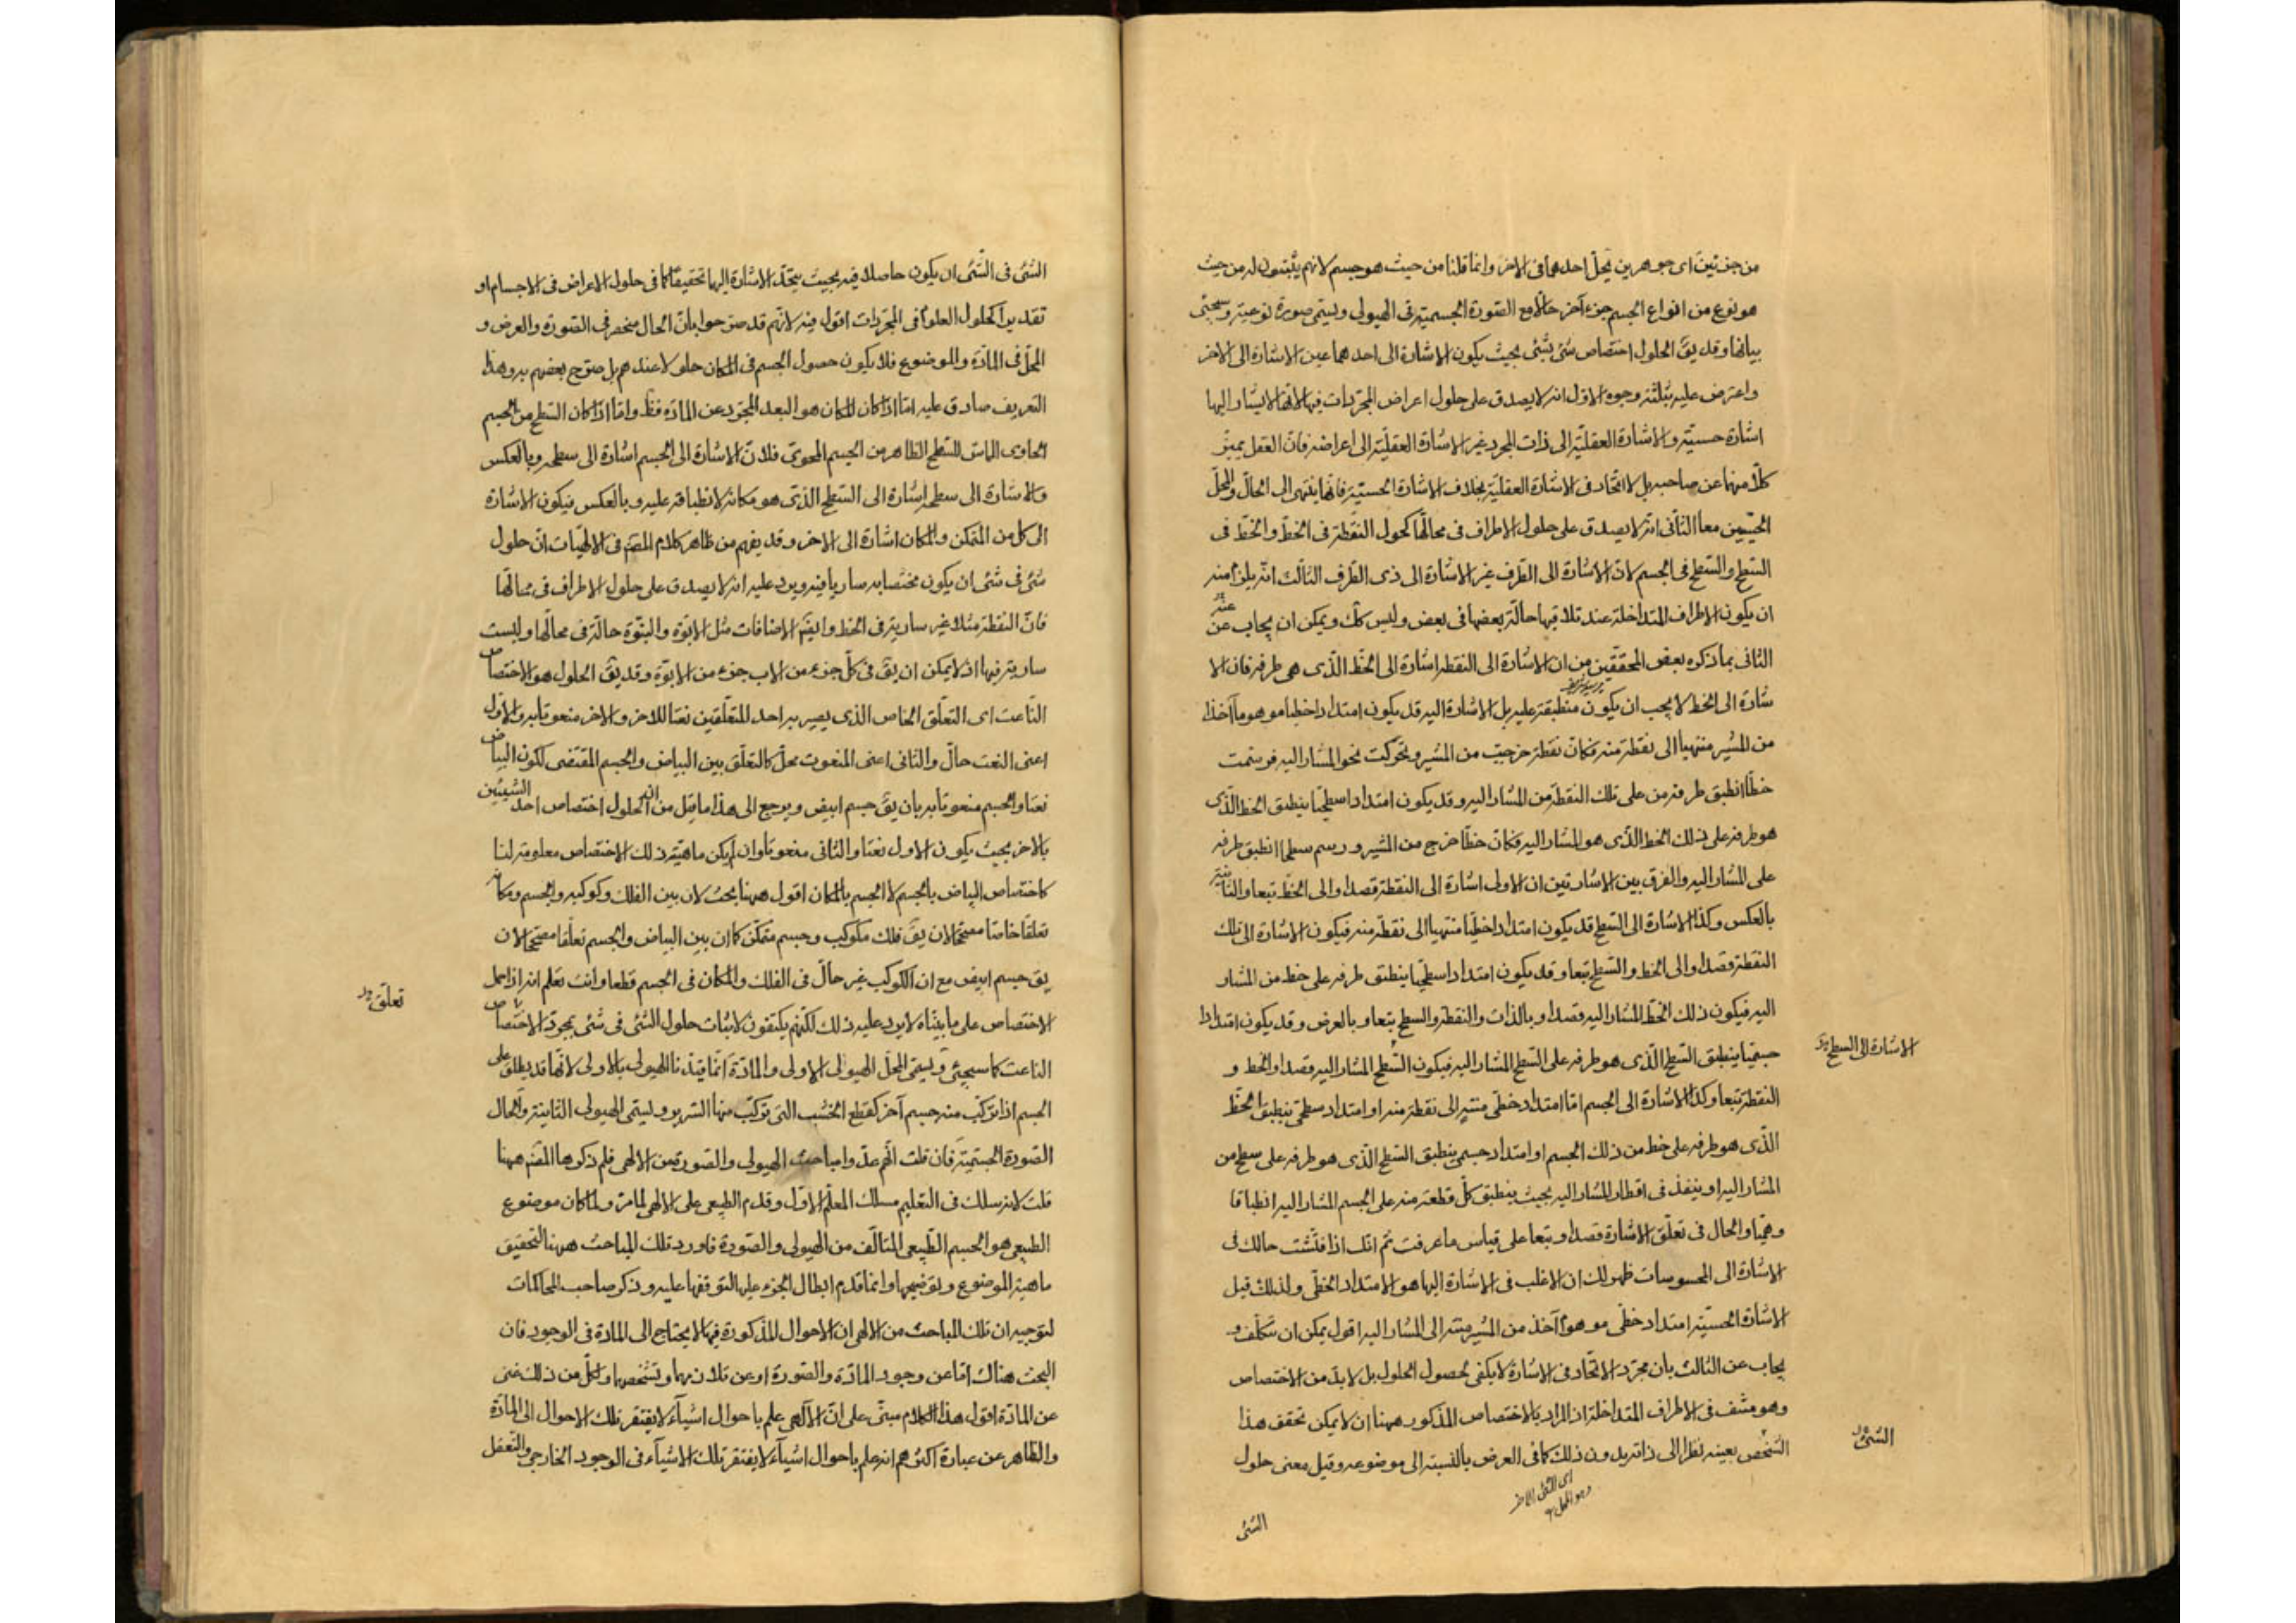 من جزئين اى جوهرين يحلّ احدهما فى الاخر وانما قلنا من حيث هو جسم لانهم يثبتون له من حيث
هو نوع من انواع الجسم جزء آخر حالّا مع الصّورة الجسميّة فى الهيولى ويسمّى صورة نوعيّة وسيجئ
بيانها وقد يقّ الحلول اختصاص شئ بشئ بحيث يكون الاشارة الى احدهما عين الاشارة الى الاخر
واعترض عليه بثلثة وجوه الاوّل انه لا يصدق على حلول اعراض المجرّدات فيها لانها لا يشار اليها
اشارة حسيّة والاشارة العقليّة الى ذات المجرد غير الاشارة العقليّة الى اعراضه فانّ العقل يميّز
كلّا منهما عن صاحبه بل لا اتّحاد فى الاشارة العقليّة بخلاف الاشارة الحسيّة فانّها ينتهى الى الحالّ والمحلّ
الحسّيين معا الثّانى انّه لا يصدق على حلول الاطراف فى محالّها كحول النّقطة فى الخطّ والخطّ فى
السّطح والسّطح فى الجسم لانّ الاشارة الى الطّرف غير الاشارة الى ذى الطّرف الثالث انّه يلزم منه
ان يكون الاطراف المتداخلة عند تلاقيها حالّة بعضها فى بعض وليس كلّك ويمكن ان يجاب عن
الثانى بما ذكره بعض المحقّقين من ان الاشارة الى النقطة اشارة الى الخطّ الّذى هى طرفه فان الا
شارة الى الخط لا يجب ان يكون منطبقة عليه بل الاشارة اليه قد يكون امتدادا خطيا موهوما آخذا
من المشير منتهيا الى نقطة منه فكانّ نقطة خرجت من المشير وتحرّكت نحو المشار اليه فرسمت
خطّا انطبق طرفه من على تلك النقطة من المشار اليه وقد يكون امتدادا سطحيّا ينطبق الخطّ الّذى
هو طرفه على ذلك الخط الّذى هو المشار اليه فكانّ خطّا خرج من المشير ورسم سطحا انطبق طرفه
على المشار اليه والفرق بين الاشارتين ان الاولى اشارة الى النقطة قصدا والى الخطّ تبعا والثانية
بالعكس وكذا الاشارة الى السّطح قد يكون امتدادا خطيّا منتهيا الى نقطة منه فيكون الاشارة الى تلك
النقطة قصدا والى الخط والسّطح تبعا وقد يكون امتدادا سطحيّا ينطبق طرفه على خط من المشار
اليه فيكون ذلك الخطّ المشار اليه قصدا وبالذات والنقطة والسطح تبعا وبالعرض وقد يكون امتدادا
الاشارة الى السطح
جسميّا ينطبق السّطح الّذى هو طرفه على السّطح المشار اليه فيكون السّطح المشار اليه قصدا والخط و
النقطة تبعا وكذا الاشارة الى الجسم امّا امتداد خطّى منته الى نقطة منه او امتداد سطحىّ ينطبق الخطّ
الّذى هو طرفه على خط من ذلك الجسم او امتداد جسمى ينطبق السّطح الّذى هو طرفه على سطح من
المشار اليه او ينفذ فى اقطار المشار اليه بحيث ينطبق كلّ قطعة منه على الجسم المشار اليه انطباقا
وهميّا والحال فى تعلّق الاشارة قصدا وتبعا على قياس ما عرفت ثم انّك اذا فتّشت حالك فى
الاشارة الى المحسوسات ظهر لك ان الاغلب فى الاشارة اليها هو الامتداد الخطّى ولذلك قيل
الاشارة الحسيّة امتداد خطّى موهوم آخذ من المشير منته الى المشار اليه اقول يمكن ان يتكلّف و
يجاب عن الثالث بان مجرّد الاتّحاد فى الاشارة لا يكفى لحصول الحلول بل لا بدّ من الاختصاص
وهو منتف فى الاطراف المتداخلة اذ المراد بالاختصاص المذكور ههنا ان لا يمكن تحقّق هذا
الشئ
الشّخص بعينه نظرا الى ذاته بدون ذلك كما فى العرض بالنّسبة الى موضوعه وقيل معنى حلول
اى الشئ الاخر
وهو المحل
الشئ
الشّئ فى الشّئ ان يكون حاصلا فيه بحيث يتّحد الاشارة اليها تحقيقا كما فى حلول الاعراض فى الاجسام او
تقديرا كحلول العلوم فى المجرّدات اقول فيه لانّهم قد صرّحوا بانّ الحال منحصر فى الصّورة والعرض و
المحلّ فى المادّة والموضوع فلا يكون حصول الجسم فى المكان حلولا عندهم بل صرّح بعضهم به وهذا
التعريف صادق عليه امّا اذا كان المكان هو البعد المجرّد عن المادّة فظّ وامّا اذا كان السّطح من الجسم
الحاوى المماسّ للسّطح الظاهر من الجسم المحوىّ فلانّ الاشارة الى الجسم اشارة الى سطحه وبالعكس
والاشارة الى سطحه اشارة الى السّطح الّذى هو مكانه لانطباقه عليه وبالعكس فيكون الاشارة
الى كل من المتمكن والمكان اشارة الى الاخر وقد يفهم من ظاهر كلام المصّ فى الالهيّات انّ حلول
شئ فى شئ ان يكون مختصّا به ساريا فيه ويرد عليه انه لا يصدق على حلول الاطراف فى محالّها
فانّ النقطة مثلا غير سارية فى الخط وايضّ الاضافات مثل الابوّة والبنوّة حالّة فى محالّها وليست
سارية فيها اذ لا يمكن ان يقّ فى كلّ جزء من الاب جزء من الابوّة وقد يقّ الحلول هو الاختصاص
الناعت اى التعلّق الخاص الذى يصير به احد المتعلّقين نعتا للاخر والاخر منعوتا به والاول
اعنى النعت حالّ والثانى اعنى المنعوت محلّ كالتعلّق بين البياض والجسم المقتضى لكون البياض
نعتا والجسم منعوتا به بان يقّ جسم ابيض ويرجع الى هذا ما قيل من انّ الحلول اختصاص احد الشّيئين
بالاخر بحيث يكون الاول نعتا والثانى منعوتا وان لم يكن ماهيّة ذلك الاختصاص معلومة لنا
كاختصاص البياض بالجسم لا الجسم بالمكان اقول ههنا بحث لان بين الفلك وكوكبه والجسم ومكانه
تعلّقا خاصّا مصحّحا لان يقّ فلك مكوكب وجسم متمكّن كما ان بين البياض والجسم تعلّقا مصحّحا لان
يقّ جسم ابيض مع ان الكوكب غير حالّ فى الفلك والمكان فى الجسم قطعا وانت تعلم انه اذا حمل
تعلّق
الاختصاص على ما بيّنّاه لا يرد عليه ذلك لكنّهم يكتفون لاثبات حلول الشئ فى شئ بمجرّد الاختصاص
الناعت كما سيجئ ويسمّى المحلّ الهيولى الاولى والمادّة انّما قيّدنا الهيولى بالاولى لانّها قد يطلق على
الجسم اذا تركّب منه جسم آخر كقطع الخشب التى تركّب منها السّرير ويسمّى الهيولى الثانية والحال
الصّورة الجسميّة فان قلت انّهم عدّوا مباحث الهيولى والصّورة من الالهى فلم ذكرها المصّ ههنا
قلت لانه سلك فى التعليم مسلك المعلّم الاوّل وقدم الطبيعى على الالهى لما مرّ ولما كان موضوع
الطبيعى هو الجسم الطّبيعى المتألّف من الهيولى والصّورة فاورد تلك المباحث ههنا لتحقيق
ماهية الموضوع وتوضيحها وانما قدم ابطال الجزء عليها لتوقفها عليه وذكر صاحب المحاكمات
لتوجيه ان تلك المباحث من الالهى ان الاحوال المذكورة فيها لا يحتاج الى المادة فى الوجود فان
البحث هناك امّا عن وجود المادّة والصّورة او عن تلازمهما وتشخصهما والكلّ من ذلك غنى
عن المادّة اقول هذا الكلام مبنىّ على انّ الالهى علم باحوال اشياء لا يفتقر تلك الاحوال الى المادّة
والظاهر عن عبارة اكثرهم انه علم باحوال اشياء لا يفتقر تلك الاشياء فى الوجود الخارجى والتعقل